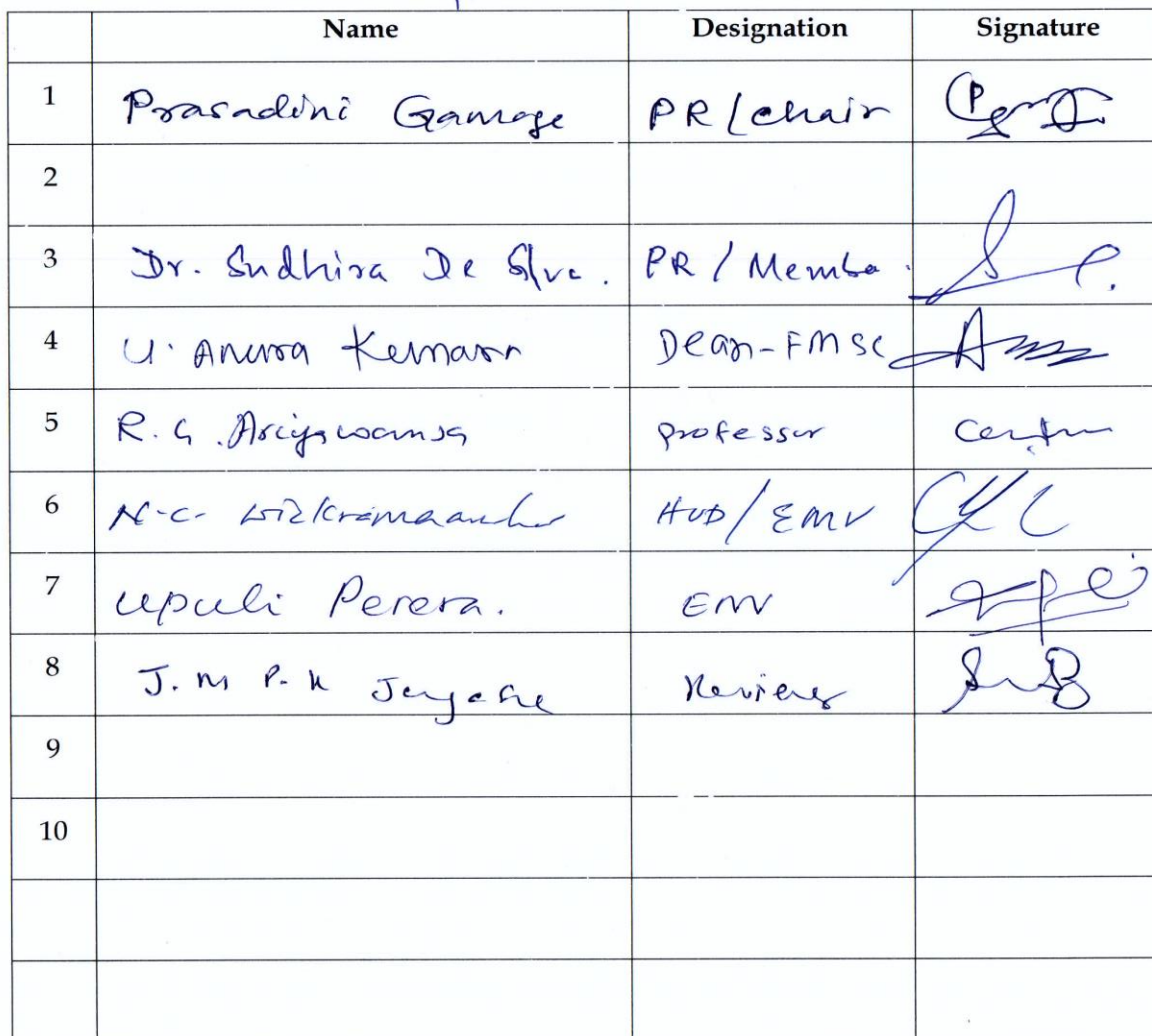 Name Designation Signature
1 Prasadini Gamage PR/chair
2
3 Dr. Sudhira De Silva. PR / Membe
4 U. Anura Kumara Dean-FMSC
5 R. G. Ariyawansa professor
6 N.C. HOD/EMV
7 Upuli Perera. EMV
8 J. M P. K
9
10